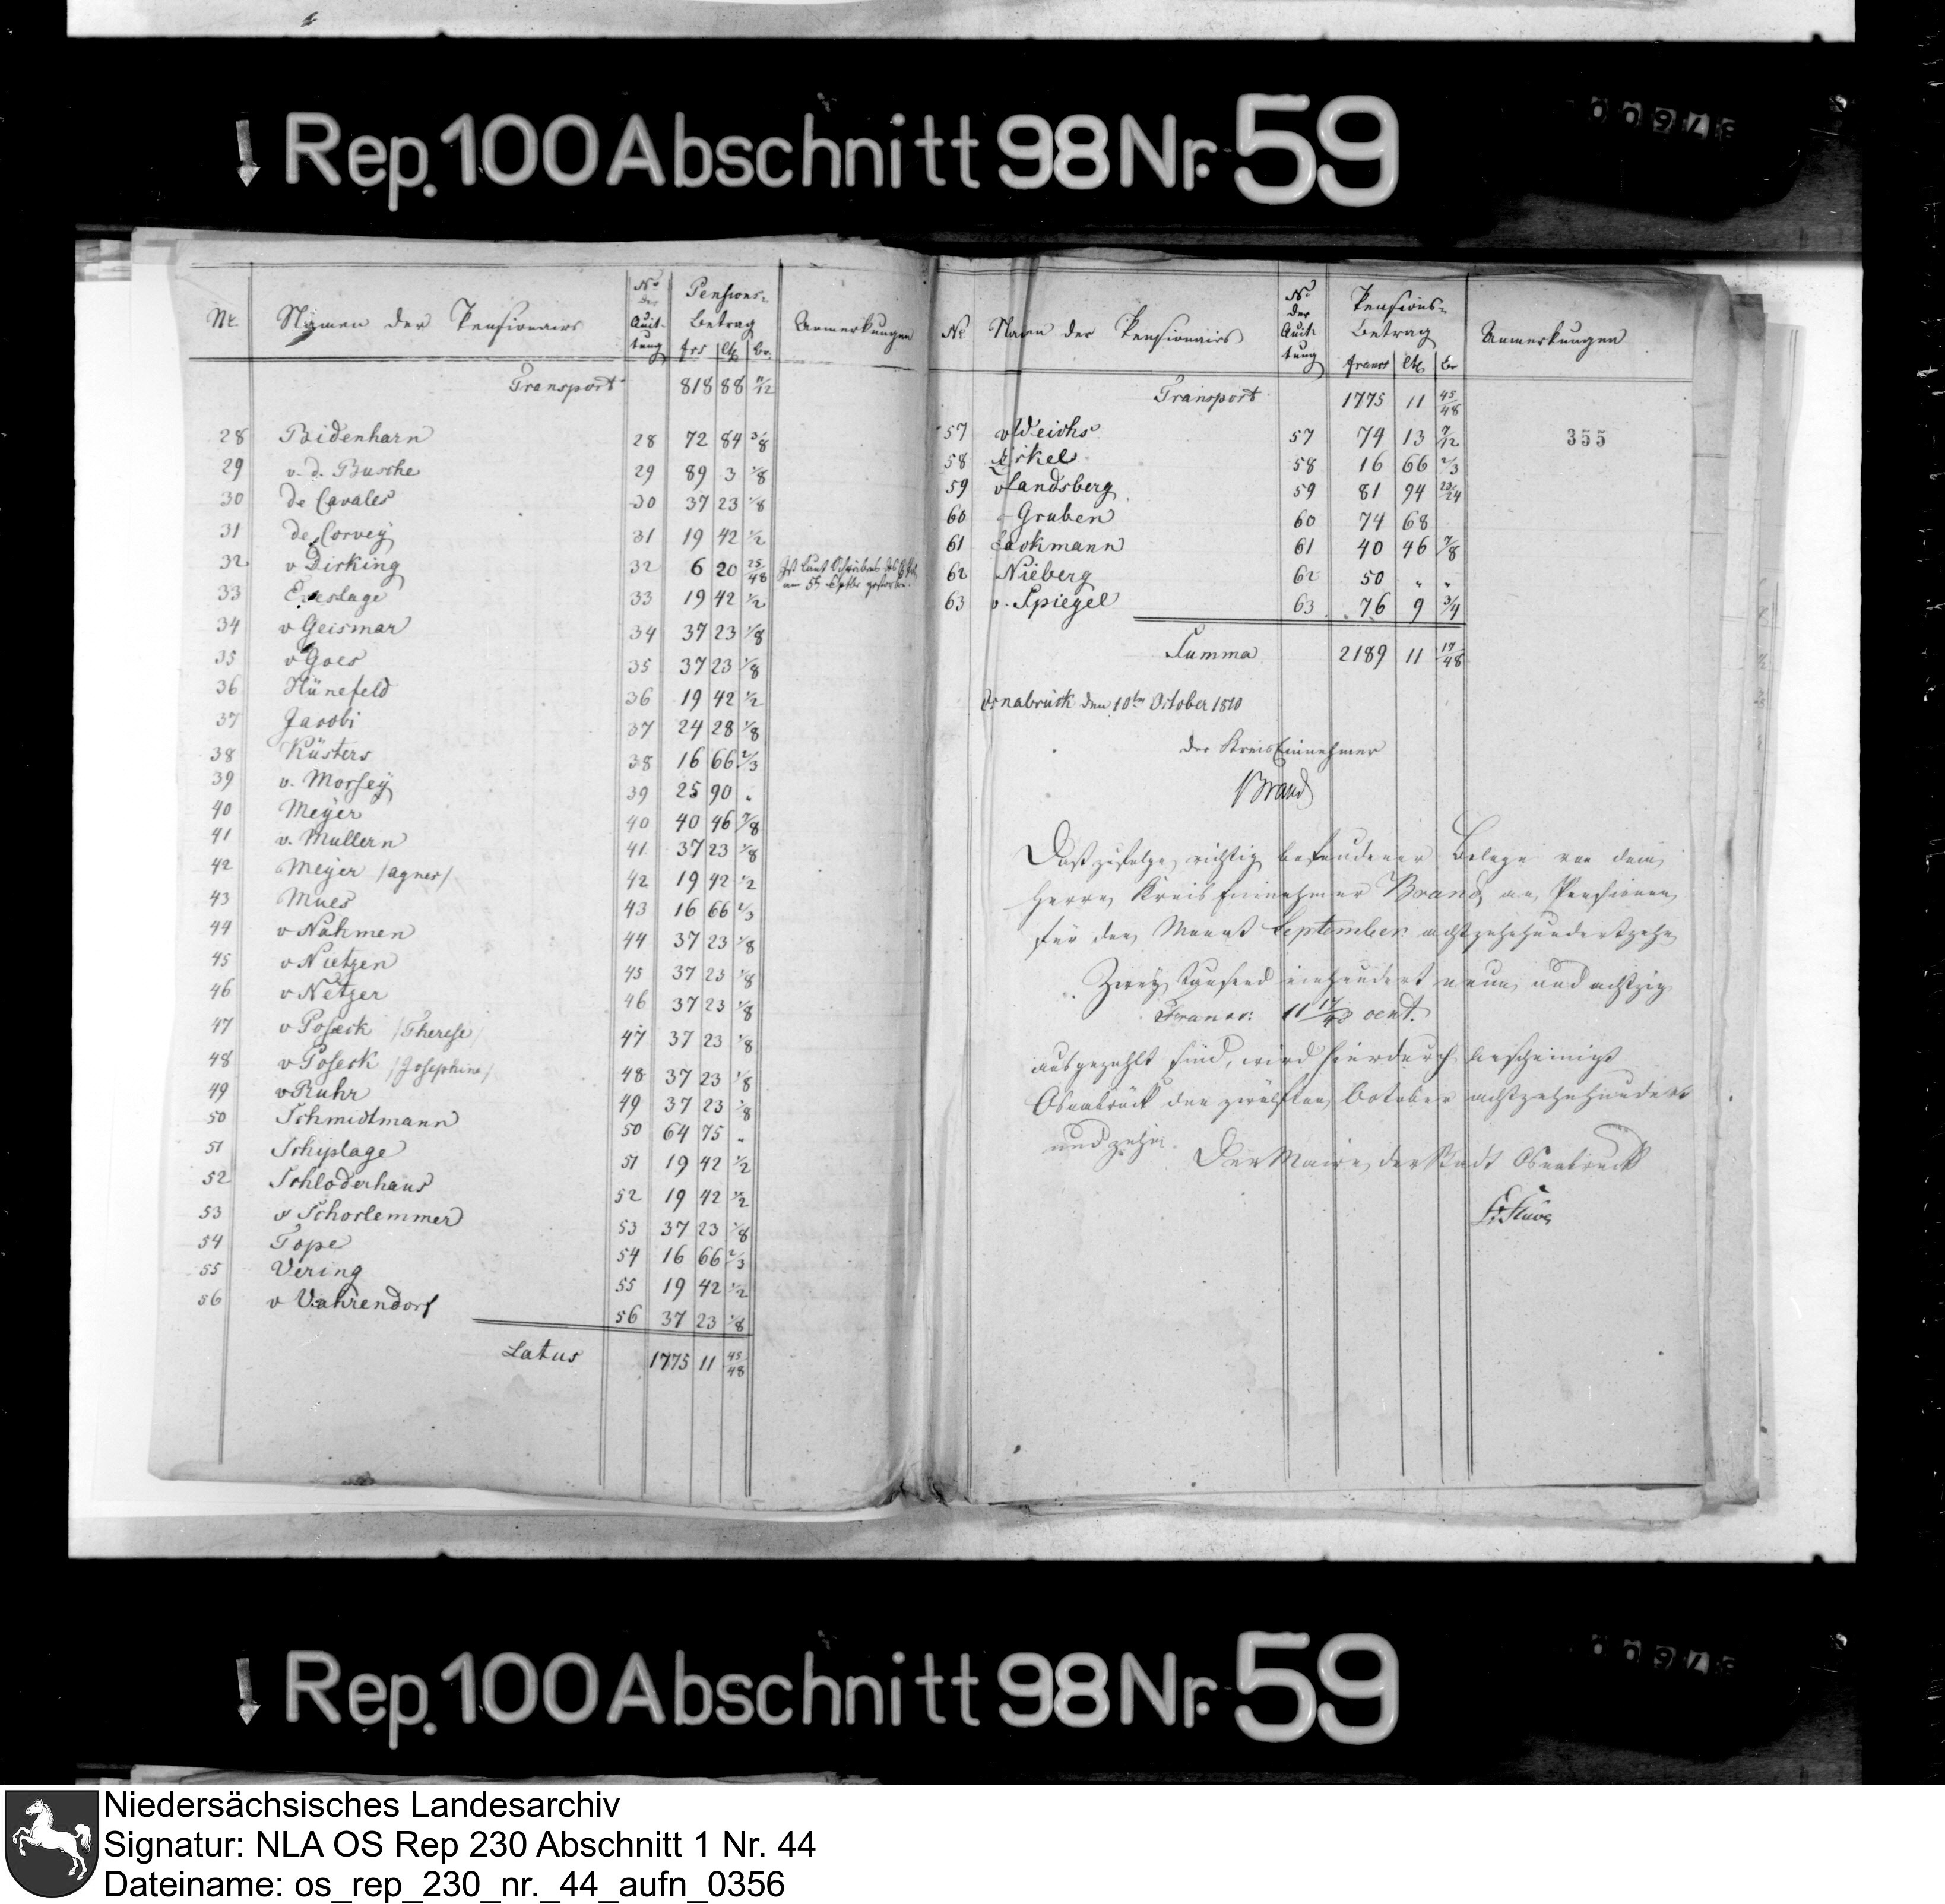 Rep. 100 Abschnitt 98 Nr. 59
Nr. Namen der Pensionairs No der Quit- tung Pensions- Betrag Anmerkungen
frs Ct. Br.
Transport 818 88 7/12
28 Bidenharn 28 72 84 3/8
29 v. d. Busche 29 89 3 1/8
30 de Cavales 30 37 23 1/8
31 de Corvey 31 19 42 1/2
32 v Dirking 32 6 20 25/48 Ist laut Schreibens
am 5t Septbr gestorben.
33 Eveslage 33 19 42 1/2
34 v Geismar 34 37 23 1/8
35 v Goes 35 37 23 1/8
36 Hünefeld 36 19 42 1/2
37 Jacobi 37 24 28 1/8
38 Küsters 38 16 66 2/3
39 v. Morsey 39 25 90 "
40 Meyer 40 40 46 7/8
41 v. Mullern 41 37 23 1/8
42 Meyer /agnes/ 42 19 42 1/2
43 Mues 43 16 66 2/3
44 v Nahmen 44 37 23 1/8
45 v Nietzen 45 37 23 1/8
46 v Netzer 46 37 23 1/8
47 v Poseck /Therese/ 47 37 23 1/8
48 v Poseck /Josephine/ 48 37 23 1/8
49 v Ruhr 49 37 23 1/8
50 Schmidtmann 50 64 75 "
51 Schyplage 51 19 42 1/2
52 Schloderhaus 52 19 42 1/2
53 v Schorlemmer 53 37 23 1/8
54 Tope 54 16 66 2/3
55 Vering 55 19 42 1/2
56 v Vahrendorf 56 37 23 1/8
Latus 1775 11 45/48
Nr. Namen der Pensionairs No der Quit- tung Pensions- Betrag Anmerkungen
francs Ct. Br
Transport 1775 11 45/48
355
57 v Weichs 57 74 13 7/12
58 Zirkel 58 16 66 2/3
59 v Landsberg 59 81 94 23/24
60 Gruben 60 74 68
61 Lackmann 61 40 46 7/8
62 Nieberg 62 50 " "
63 v. Spiegel 63 76 9 3/4
Summa 2189 11 17/48
Osnabrück den 10ten October 1810
der KreisEinnehmer
Brand
Daß zufolge richtig befundener Belege von dem
Herrn Kreis Einnehmer Brand an Pensionen
für den Monat September achtzehnhundertzehn
Zwey tausend einhundert neun und achtzig
Francs: 11 17/48 cent.
ausgezahlt sind, wird hierdurch bescheinigt
Osnabrück den zwölften October achtzehnhundert
und zehn.
Der Maire der Stadt Osnabrück
Stüve
Rep. 100 Abschnitt 98 Nr. 59
Niedersächsisches Landesarchiv
Signatur: NLA OS Rep 230 Abschnitt 1 Nr. 44
Dateiname: os_rep_230_nr._44_aufn_0356